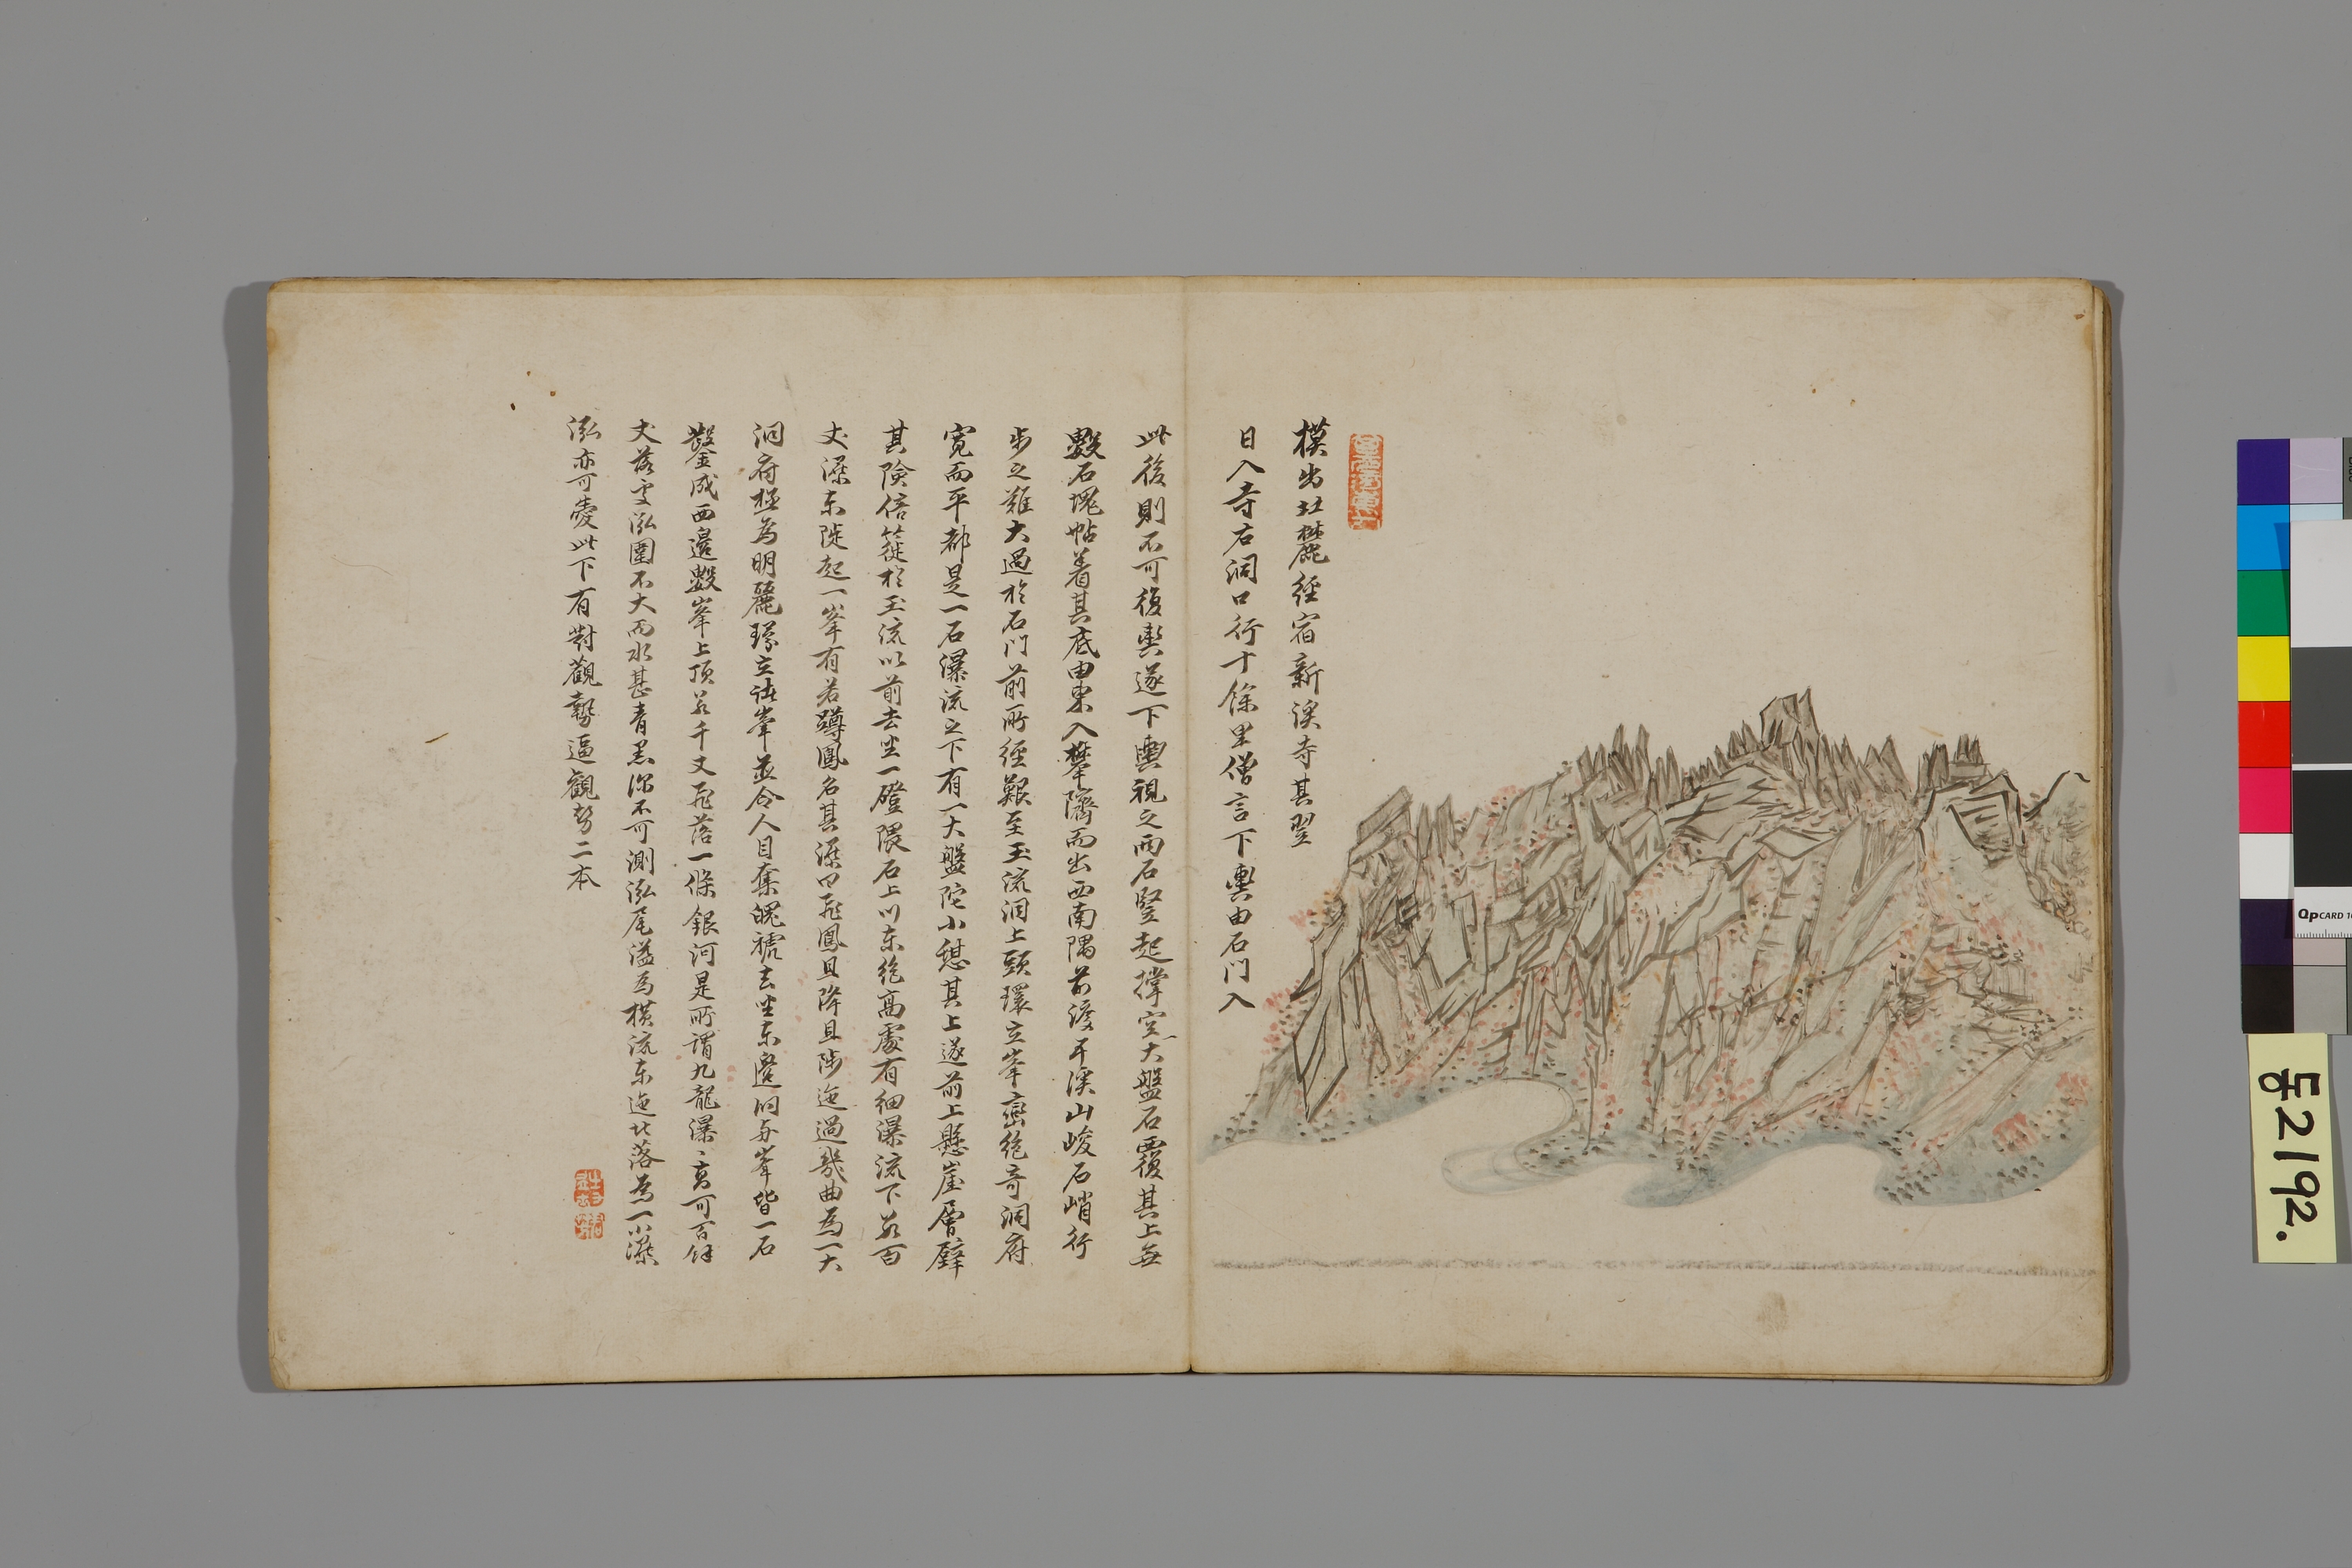 模出北麓經宿新溪寺其翌
日入寺右洞口行十餘里僧言下輿由石門入
此後則不可復輿遂下輿視之兩石竪起撐空大盤石覆其上無
數石塊帖着其底由東入攀躋而出西南隅前渡平溪山峻石峭行
步之難大過於石門前所經艱至玉流洞上頭環立峯巒絶奇洞府
寬而平都是一石瀑流之下有一大盤陀小憩其上遂前上懸崖層壁
其險倍蓰於玉流以前去坐一磴隈石上川东絶高處有細瀑流下若百
丈深东陡起一峯有若蹲鳳名其瀑曰飛鳳且降且陟迤過幾曲爲一大
洞府極爲明麗環立諸峯並令人目奪魄褫去坐东邊洞與峯皆一石
鑿成西邊數峯上頂若千丈飛落一條銀河是所謂九龍瀑丶高可百餘
丈落處泓圍不大而水甚青黑深不可測泓尾溢爲橫流东迤北落爲一小瀑
泓亦可愛此下有對觀勢逼觀勢二本
동2192.
QPCARD